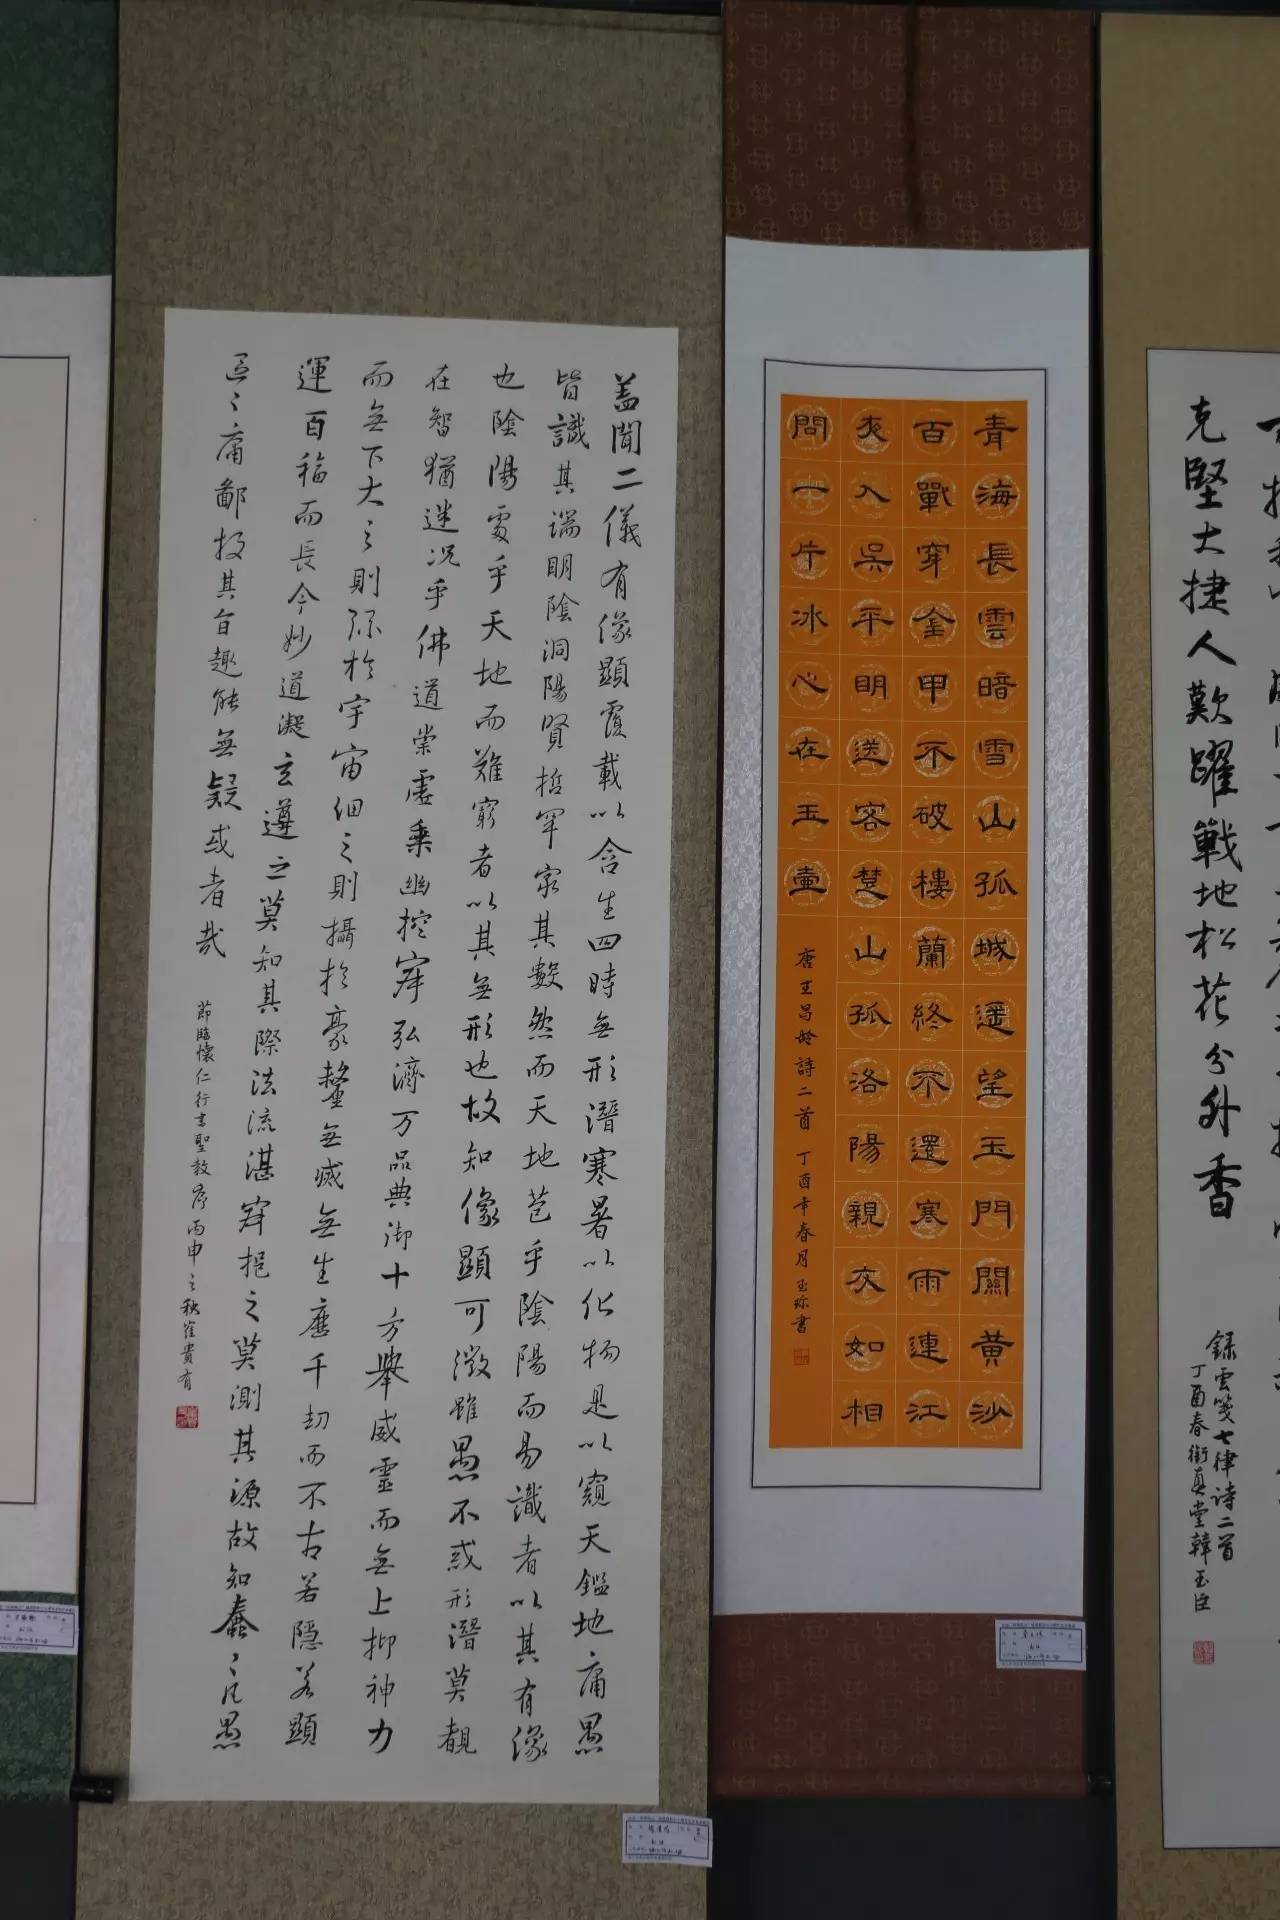 盖聞二儀有像顯覆載以含生四時無形潛寒暑以化物是以窺天鑑地庸愚
皆識其端明陰洞陽賢哲罕窮其數然而天地苞乎陰陽而易識者以其有像
也陰陽處乎天地而難窮者以其無形也故知像顯可徵雖愚不惑形潛莫覩
在智猶迷况乎佛道崇虛乘幽控寂弘濟万品典御十方舉威靈而無上抑神力
而無下大之則弥於宇宙細之則攝於豪釐無滅無生歷千劫而不古若隱若顯
運百福而長今妙道凝玄遵之莫知其際法流湛寂挹之莫測其源故知蠢々凡愚
區々庸鄙投其旨趣能無疑或者哉
節臨懷仁行書聖教序丙申之秋崔貴有
青海長雲暗雪山孤城遥望玉門關黄沙
百戰穿金甲不破樓蘭終不還寒雨連江
夜入吳平明送客楚山孤洛陽親友如相
問一片冰心在玉壺
唐王昌齡詩二首 丁酉年春月玉珎書
克堅大捷人歡躍戰地松花分外香
錄雲箋七律诗二首
丁酉春衡真堂韓玉臣